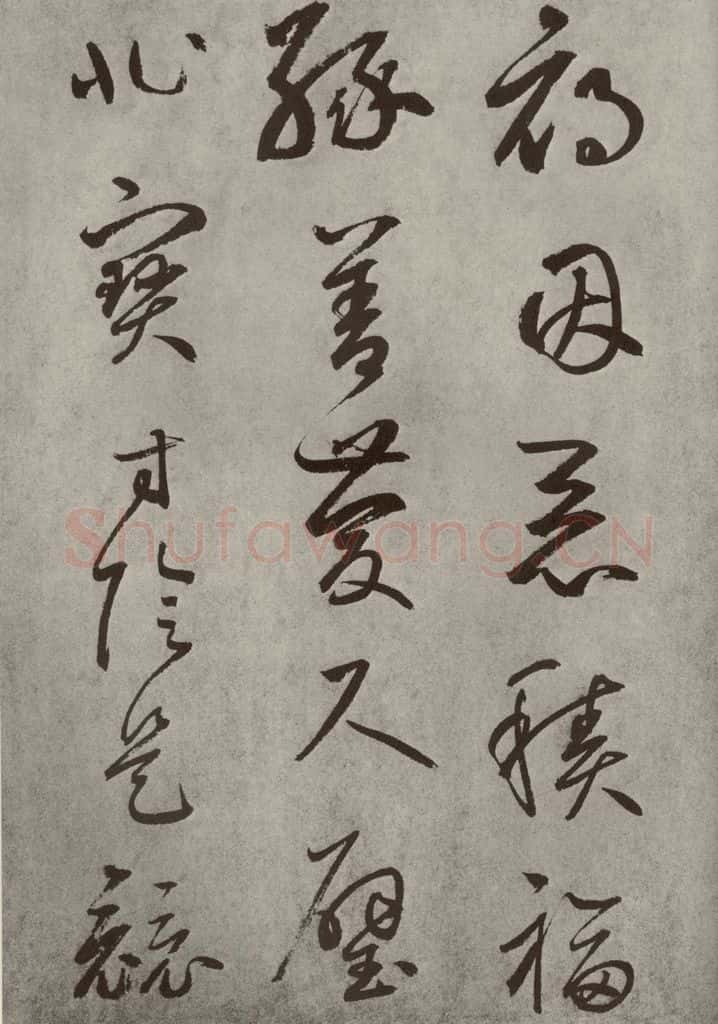 禍因惡積福
緣善慶尺璧
非寶寸陰是競
Shufawang.CN